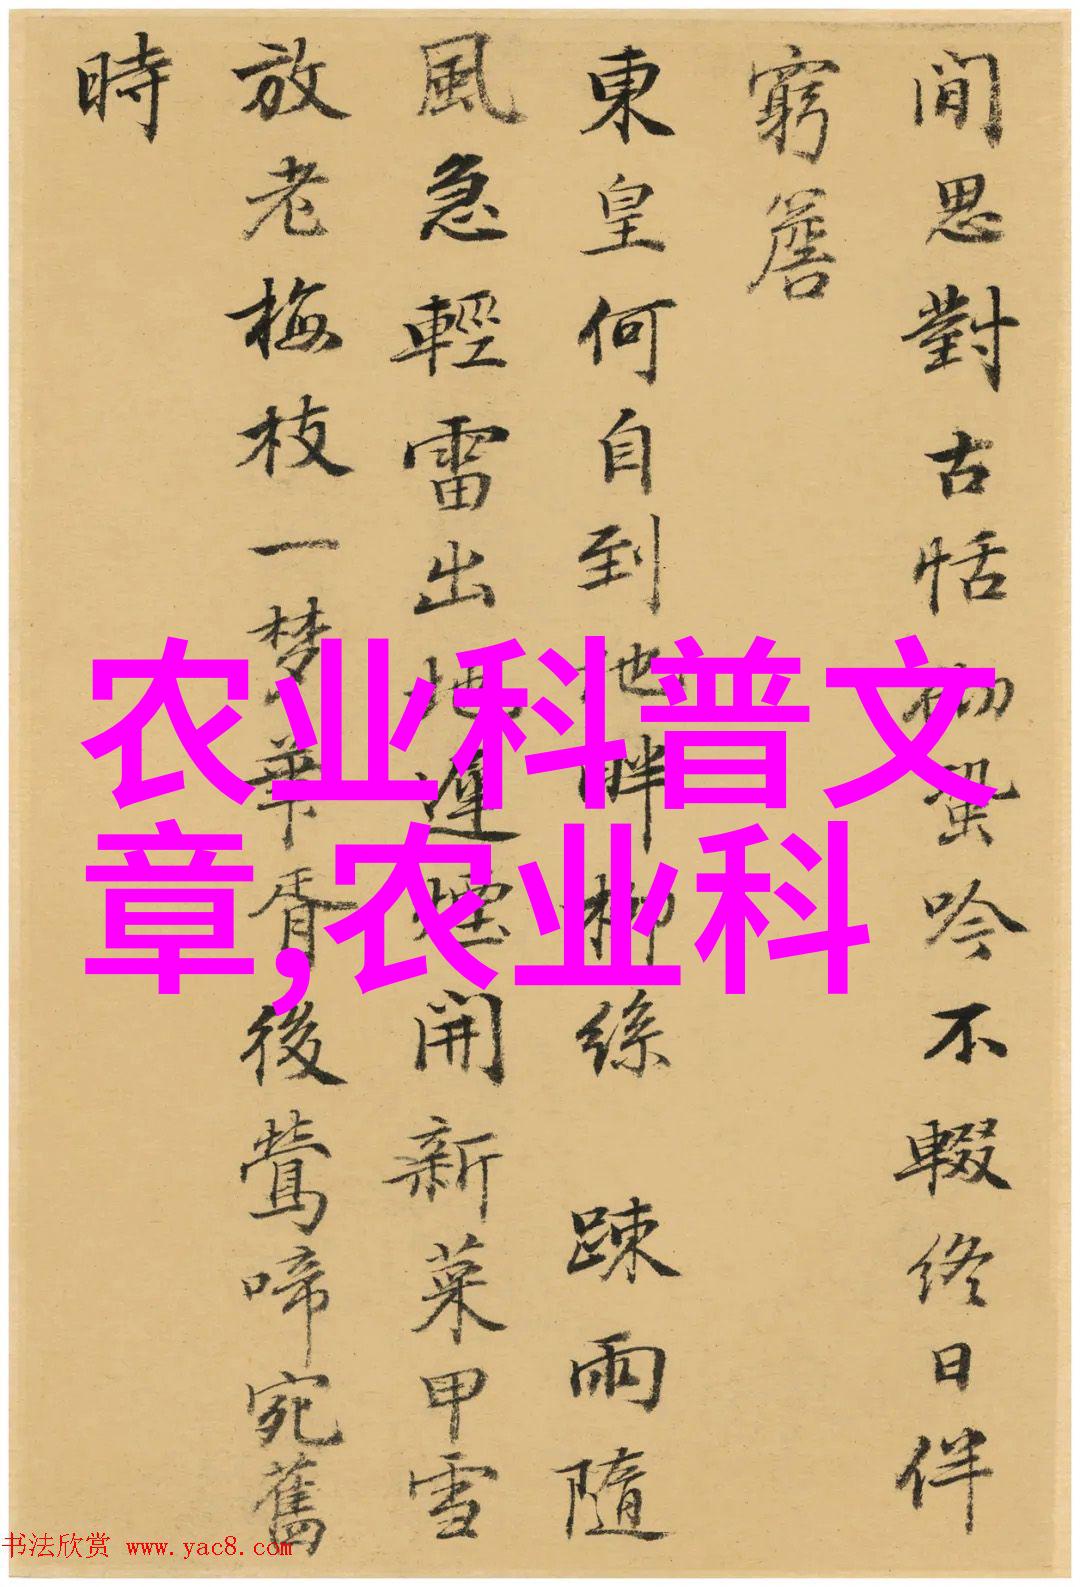 閒思對古恬物蛩吟不輟終日伴
窮簷
東皇何自到池畔柳絲踈雨隨
風急輕雷出地遲煙開新菜甲雪
放老梅枝一梦華胥後鶯啼宛舊
時
农业科普文
章,农业科
书法欣赏 www.yac8.com